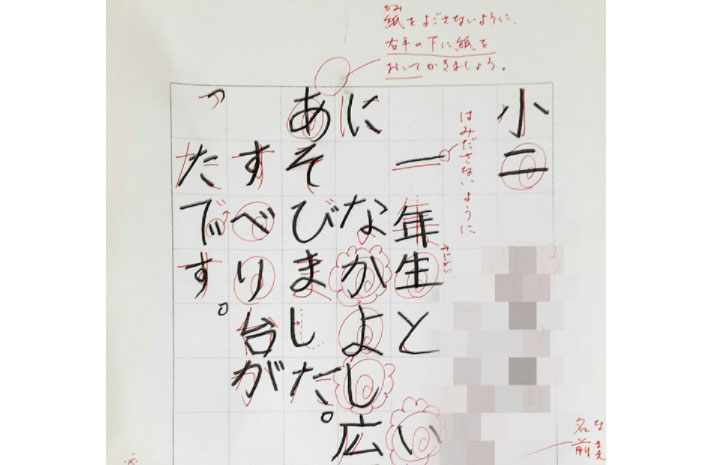 かみ
紙をよごさないように、
右手の下に紙を
おいてかきましょう。
小二
はみださないように
一年生とい
になかよし広
あそびました。
すべり台が
ったです。
なまえ
名前